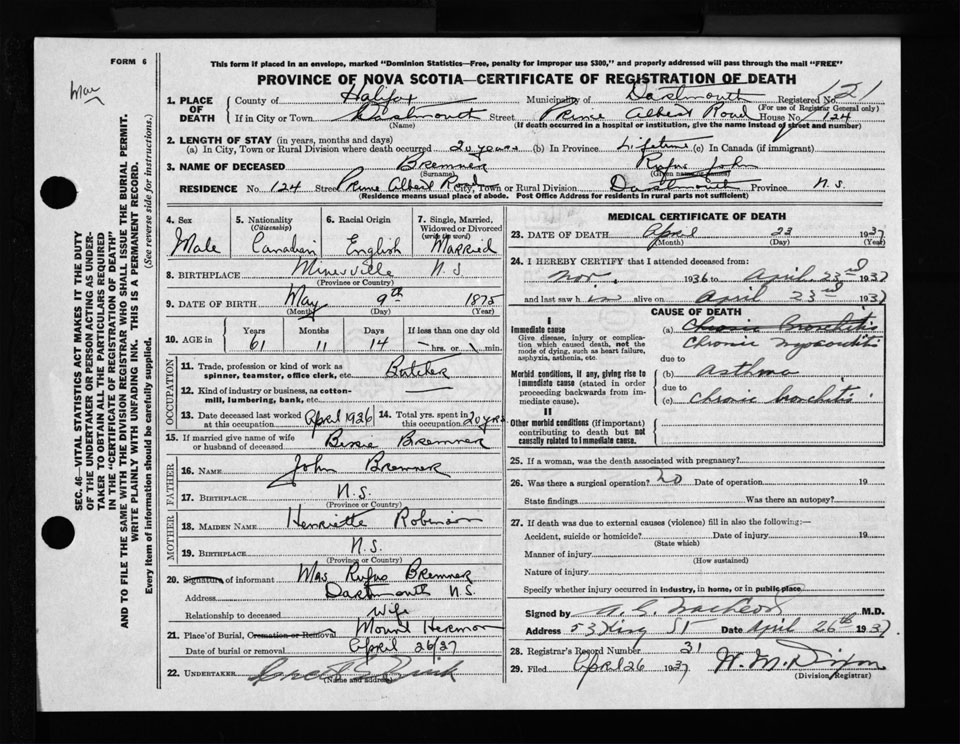 FORM 6
This form if placed in an envelope, marked "Dominion Statistics—Free, penalty for improper use $300," and properly addressed will pass through the mail "FREE"
PROVINCE OF NOVA SCOTIA—CERTIFICATE OF REGISTRATION OF DEATH
1. PLACE OF DEATH County of Halifax Municipality of Dartmouth Registered No. 21
(For use of Registrar General only)
If in City or Town Dartmouth Street Prince Albert Road House No. 124
(Name) (If death occurred in a hospital or institution, give the name instead of street and number)
2. LENGTH OF STAY (in years, months and days)
(a) In City, Town or Rural Division where death occurred 20 years (b) In Province Lifetime (c) In Canada (if immigrant)
3. NAME OF DECEASED Bremner Rufus John
(Surname) (Given name or names)
RESIDENCE No. 124 Street Prince Albert Road City, Town or Rural Division Dartmouth Province N.S.
(Residence means usual place of abode. Post Office Address for residents in rural parts not sufficient)
4. Sex 5. Nationality (Citizenship) 6. Racial Origin 7. Single, Married, Widowed or Divorced (write the word)
Male Canadian English Married
8. BIRTHPLACE Minerville N.S
(Province or Country)
9. DATE OF BIRTH May 9th 1875
(Month) (Day) (Year)
10. AGE in Years Months Days If less than one day old
61 11 14 hrs. or min.
OCCUPATION
11. Trade, profession or kind of work as spinner, teamster, office clerk, etc. Butcher
12. Kind of industry or business, as cotton-mill, lumbering, bank, etc.
13. Date deceased last worked at this occupation April 1936 14. Total yrs. spent in this occupation 20 yrs
15. If married give name of wife or husband of deceased Bessie Bremner
FATHER
16. NAME John Bremner
17. BIRTHPLACE N.S.
(Province or Country)
MOTHER
18. MAIDEN NAME Henriette Robinson
19. BIRTHPLACE N.S.
(Province or Country)
20. Signature of informant Mrs Rufus Bremner
Address Dartmouth N.S.
Relationship to deceased Wife
21. Place of Burial, Cremation or Removal Mount Hermon
Date of burial or removal April 26/37
22. UNDERTAKER
(Name and address)
MEDICAL CERTIFICATE OF DEATH
23. DATE OF DEATH April 23 1937
(Month) (Day) (Year)
24. I HEREBY CERTIFY that I attended deceased from:
Nov. 1936 to April 23rd 1937
and last saw him alive on April 23rd 1937
CAUSE OF DEATH
I
Immediate cause
Give disease, injury or complication which caused death, not the mode of dying, such as heart failure, asphyxia, asthenia, etc.
(a) Chronic Bronchitis
Chronic myocarditis
due to
Morbid conditions, if any, giving rise to immediate cause (stated in order proceeding backwards from immediate cause).
(b) Asthma
due to
(c) Chronic bronchitis
II
Other morbid conditions (if important) contributing to death but not causally related to immediate cause.
25. If a woman, was the death associated with pregnancy?
26. Was there a surgical operation? no Date of operation 19
State findings Was there an autopsy?
27. If death was due to external causes (violence) fill in also the following:—
Accident, suicide or homicide? Date of injury 19
(State which)
Manner of injury
(How sustained)
Nature of injury
Specify whether injury occurred in industry, in home, or in public place
Signed by M.D.
Address 53 King St Date April 26th 1937
28. Registrar's Record Number 31
29. Filed April 26 1937 W. M. Dixon
(Division Registrar)
SEC. 46—VITAL STATISTICS ACT MAKES IT THE DUTY
OF THE UNDERTAKER OR PERSON ACTING AS UNDER-
TAKER TO OBTAIN ALL THE PARTICULARS REQUIRED
IN THE "CERTIFICATE OF REGISTRATION OF DEATH"
AND TO FILE THE SAME WITH THE DIVISION REGISTRAR WHO SHALL ISSUE THE BURIAL PERMIT.
WRITE PLAINLY WITH UNFADING INK. THIS IS A PERMANENT RECORD.
Every item of information should be carefully supplied. (See reverse side for instructions.)